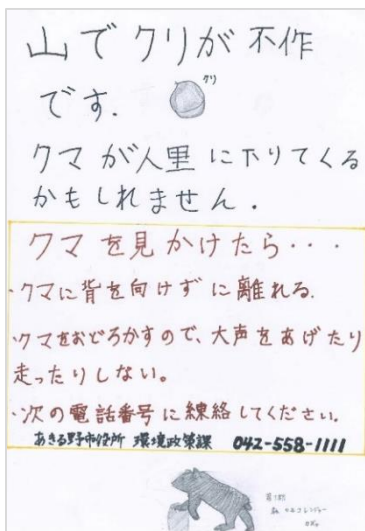 山でクリが不作
です.
クリ
クマが人里に下りてくる
かもしれません.
クマを見かけたら・・・
・クマに背を向けずに離れる.
・クマをおどろかすので、大声をあげたり
走ったりしない。
・次の電話番号に連絡してください.
あきる野市役所 環境政策課 042-558-1111